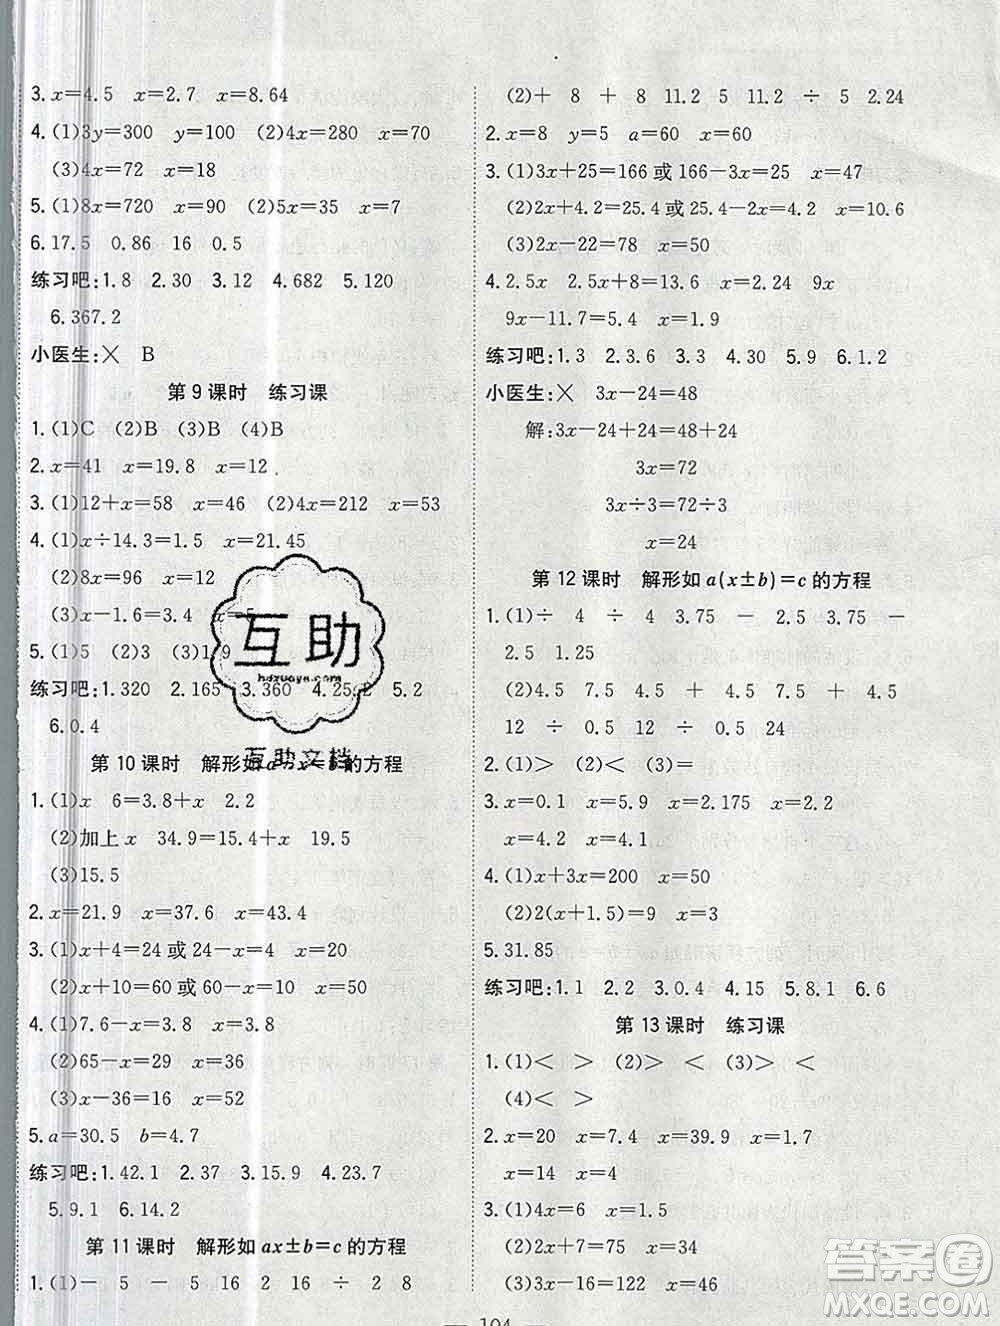 3. x=4.5 x=2.7 x=8.64
4. (1)3y=300 y=100 (2)4x=280 x=70
(3)4x=72 x=18
5. (1)8x=720 x=90 (2)5x=35 x=7
6. 17.5 0.86 16 0.5
练习吧:1.8 2.30 3.12 4.682 5.120
6.367.2
小医生:╳ B
第 9 课时 练习课
1. (1)C (2)B (3)B (4)B
2. x=41 x=19.8 x=12
3. (1)12+x=58 x=46 (2)4x=212 x=53
4. (1)x÷14.3=1.5 x=21.45
(2)8x=96 x=12
(3)x-1.6=3.4 x=5
5. (1)5 (2)3 (3)1.9
练习吧:1.320 2.165 3.360 4.25.2 5.2
6.0.4
第 10 课时 解形如 a-x=b 的方程
1. (1)x 6=3.8+x 2.2
(2)加上 x 34.9=15.4+x 19.5
(3)15.5
2. x=21.9 x=37.6 x=43.4
3. (1)x+4=24 或 24-x=4 x=20
(2)x+10=60 或 60-x=10 x=50
4. (1)7.6-x=3.8 x=3.8
(2)65-x=29 x=36
(3)x-36=16 x=52
5. a=30.5 b=4.7
练习吧:1.42.1 2.37 3.15.9 4.23.7
5.9.1 6.14.2
第 11 课时 解形如 ax±b=c 的方程
1. (1)- 5 - 5 16 2 16 ÷ 2 8
(2)+ 8 + 8 11.2 5 11.2 ÷ 5 2.24
2. x=8 y=5 a=60 x=60
3. (1)3x+25=166 或 166-3x=25 x=47
(2)2x+4.2=25.4 或 25.4-2x=4.2 x=10.6
(3)2x-22=78 x=50
4. 2.5x 2.5x+8=13.6 x=2.24 9x
9x-11.7=5.4 x=1.9
练习吧:1.3 2.3.6 3.3 4.30 5.9 6.1.2
小医生:╳ 3x-24=48
解:3x-24+24=48+24
3x=72
3x÷3=72÷3
x=24
第 12 课时 解形如 a(x±b)=c 的方程
1. (1)÷ 4 ÷ 4 3.75 - 2.5 3.75 -
2.5 1.25
(2)4.5 7.5 4.5 7.5 + 4.5 + 4.5
12 ÷ 0.5 12 ÷ 0.5 24
2. (1)> (2)< (3)=
3. x=0.1 x=5 x=2.175 x=2
x=4.2 x=4.1
4. (1)x+3x=200 x=50
(2)2(x+1.5)=9 x=3
5. 31.85
练习吧:1.1 2.2 3.0.4 4.15 5.8.1 6.6
第 13 课时 练习课
1. (1)< > (2)> < (3)> <
(4)< >
2. x=20 x=7.4 x=39.9 x=1.7
x=14 x=4
3. (1)4x=6 x=1.5
(2)7x=238 x=34
(3)3x-16=122 x=46
— 104 —
互助
hdzuoye.com
互助文档
答案圈
MXQE.COM